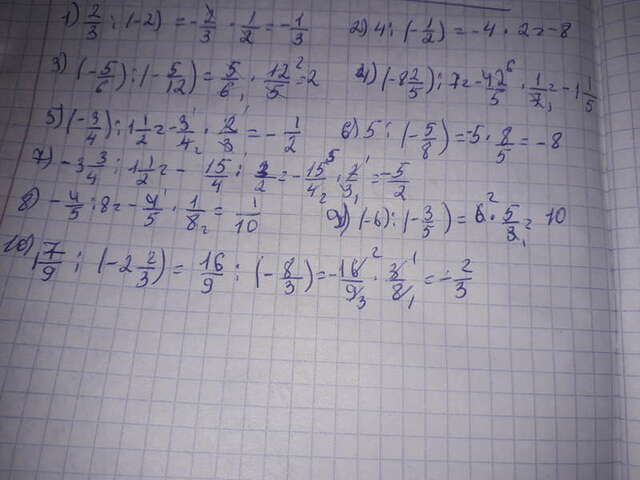 1) 2/3 : (-2) = -2/3 · 1/2 = -1/3 2) 4 : (-1/2) = -4 · 2 = -8
3) (-5/6) : (-5/12) = 5/6 · 12/5 = 2 4) (-8 2/5) : 7 = -42/5 · 1/7 = -1 1/5
5) (-3/4) : 1 1/2 = -3/4 · 2/3 = -1/2 6) 5 : (-5/8) = -5 · 8/5 = -8
7) -3 3/4 : 1 1/2 = -15/4 : 3/2 = -15/4 · 2/3 = -5/2
8) -4/5 : 8 = -4/5 · 1/8 = 1/10 9) (-6) : (-3/5) = 6 · 5/3 = 10
10) 1 7/9 : (-2 2/3) = 16/9 : (-8/3) = -16/9 · 3/8 = -2/3